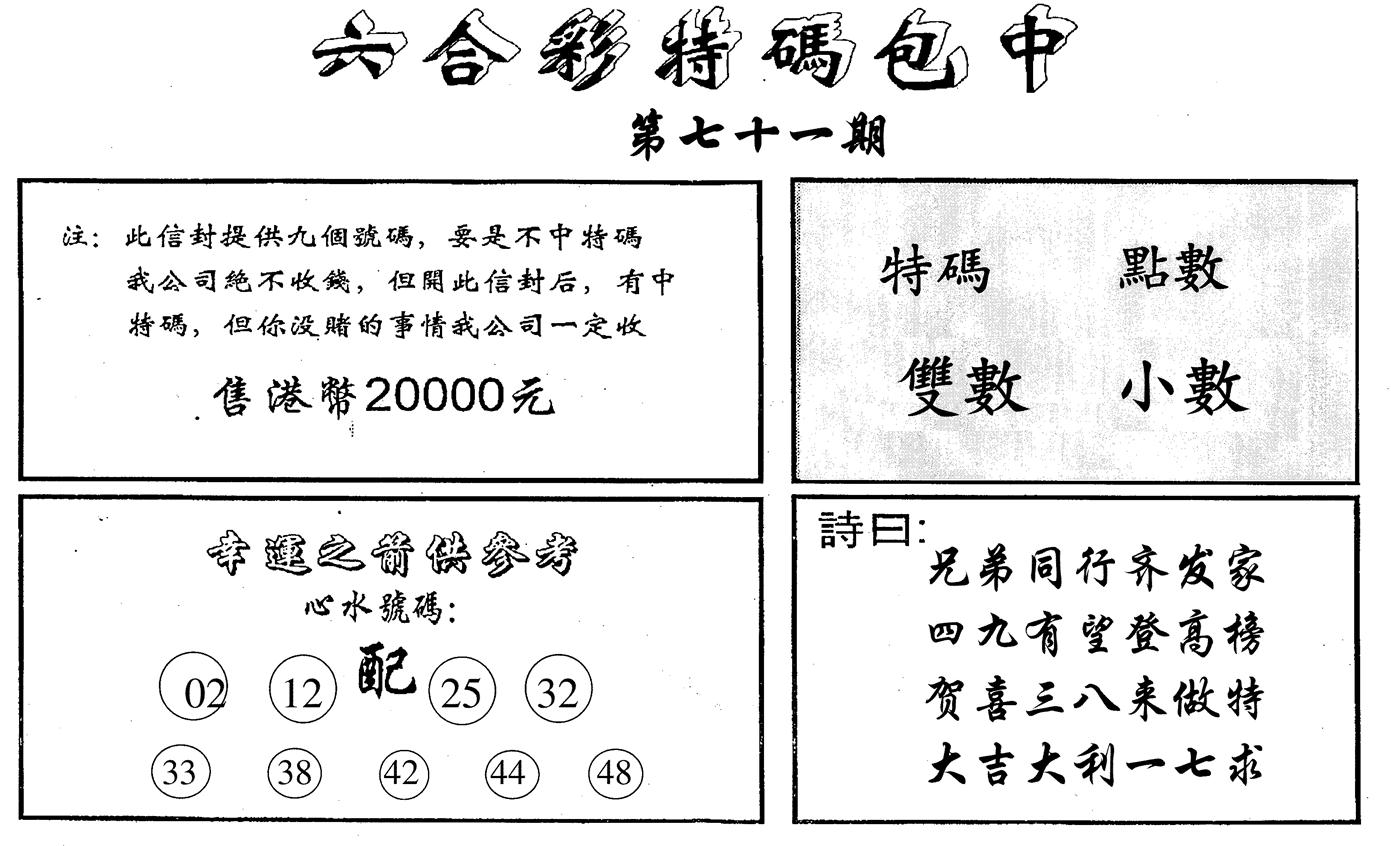 六合彩特碼包中
第七十一期
注：此信封提供九個號碼，要是不中特碼
我公司絕不收錢，但開此信封后，有中
特碼，但你没賭的事情我公司一定收
售港幣20000元
特碼 點數
雙數 小數
幸運之箭供參考
心水號碼：
02 12 配 25 32
33 38 42 44 48
詩曰：
兄弟同行齐发家
四九有望登高榜
贺喜三八来做特
大吉大利一七求